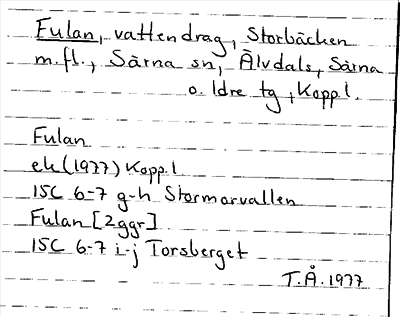 Fulan, vattendrag, Storbäcken
m.fl., Särna sn, Älvdals, Särna
o. Idre tg, Kopp l.
Fulan
ek (1977) Kopp l
15C 6-7 g-h Stormorvallen
Fulan [2ggr]
15C 6-7 i-j Torsberget
T.Å. 1977